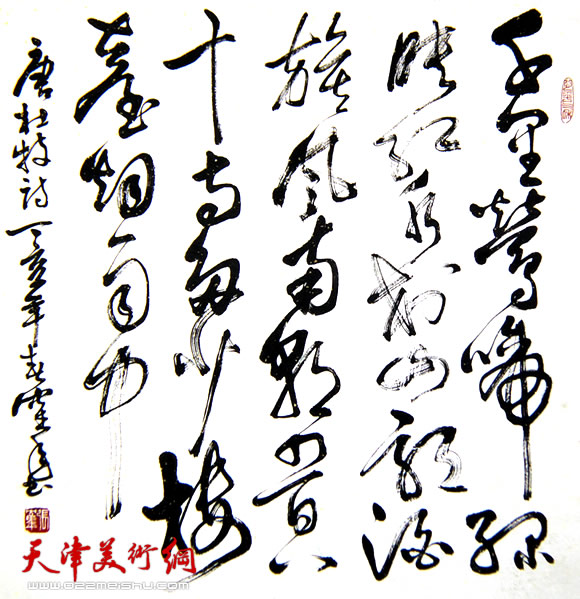 千里鶯啼綠
映紅水村山郭酒
旗風南朝四百八
十寺多少樓
臺烟雨中
唐杜牧诗丁亥年春書
天津美術網
www.022meishu.com